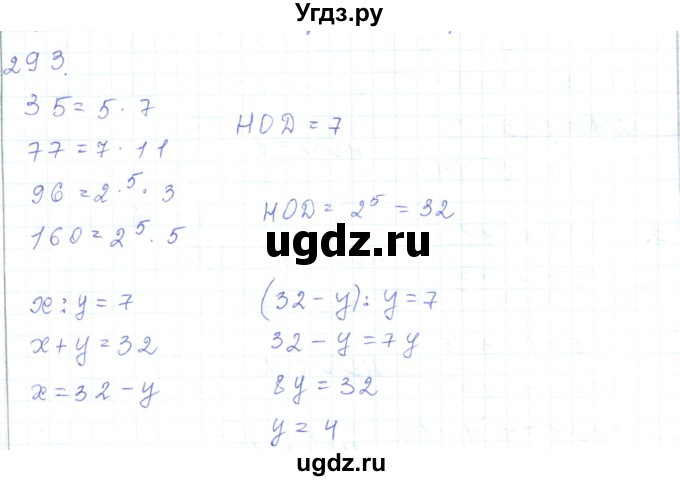 Угдз.ру
293.
35 = 5 · 7
77 = 7 · 11
НОД = 7
96 = 2·⁵· 3
160 = 2⁵ · 5
НОД = 2⁵ = 32
ugdz.ru
x : y = 7
x + y = 32
x = 32 - y
(32 - y) : y = 7
32 - y = 7y
8y = 32
y = 4
ugdz.ru